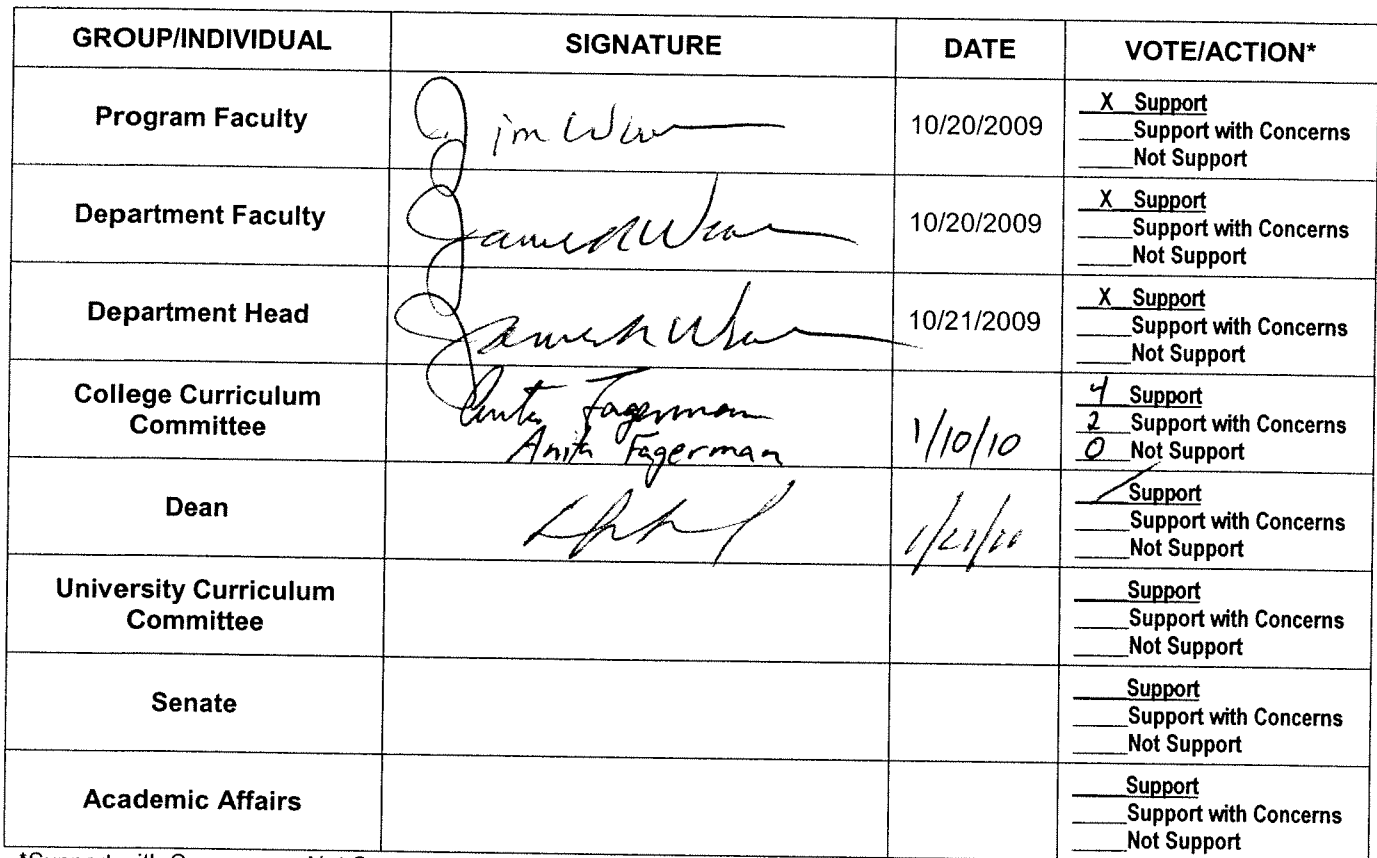 GROUP/INDIVIDUAL SIGNATURE DATE VOTE/ACTION*
Program Faculty Jim 10/20/2009 X Support
Support with Concerns
Not Support
Department Faculty 10/20/2009 X Support
Support with Concerns
Not Support
Department Head 10/21/2009 X Support
Support with Concerns
Not Support
College Curriculum
Committee
Anita Fagerman
Anita Fagerman
1/10/10
4 Support
2 Support with Concerns
0 Not Support
Dean
Support
Support with Concerns
Not Support
University Curriculum
Committee
Support
Support with Concerns
Not Support
Senate
Support
Support with Concerns
Not Support
Academic Affairs
Support
Support with Concerns
Not Support